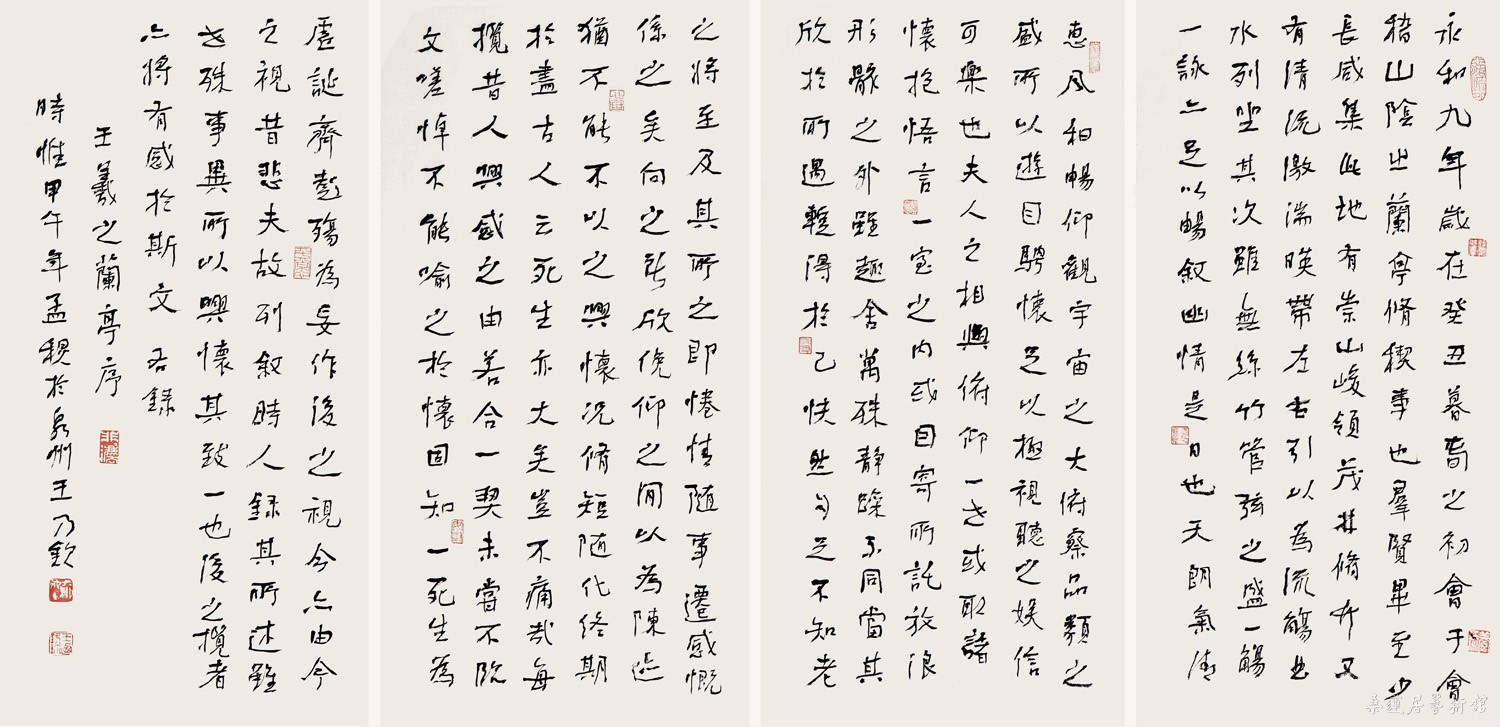 永和九年歲在癸丑暮春之初會于會
稽山陰之蘭亭脩稧事也羣賢畢至少
長咸集此地有崇山峻領茂林脩竹又
有清流激湍暎帶左右引以為流觴曲
水列坐其次雖無絲竹管弦之盛一觴
一詠亦足以暢敘幽情是日也天朗氣清
惠風和暢仰觀宇宙之大俯察品類之
盛所以遊目騁懷足以極視聽之娛信
可樂也夫人之相與俯仰一世或取諸
懷抱悟言一室之內或因寄所託放浪
形骸之外雖趣舍萬殊靜躁不同當其
欣於所遇蹔得於己快然自足不知老
之將至及其所之即惓情随事遷感慨
係之矣向之所欣俛仰之間以為陳迹
猶不能不以之興懷況脩短随化終期
於盡古人云死生亦大矣豈不痛哉每
攬昔人興感之由若合一契未嘗不臨
文嗟悼不能喻之於懷固知一死生為
虛誕齊彭殤為妄作後之視今亦由今
之視昔悲夫故列敘時人錄其所述雖
世殊事異所以興懷其致一也後之攬者
亦將有感於斯文 右錄
王羲之蘭亭序
時惟甲午年孟 於泉州王乃欽
桑蓮居藝術館